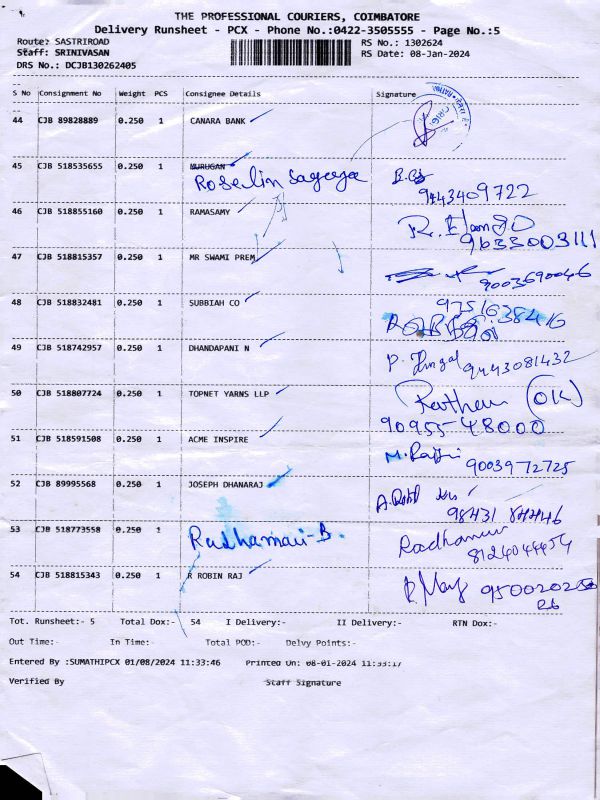 THE PROFESSIONAL COURIERS, COIMBATORE
Delivery Runsheet - PCX - Phone No.:0422-3505555 - Page No.:5
Route: SASTRIROAD RS No.: 1302624
Staff: SRINIVASAN RS Date: 08-Jan-2024
DRS No.: DCJB130262405
S No Consignment No Weight PCS Consignee Details Signature
44 CJB 89828889 0.250 1 CANARA BANK
45 CJB 518535655 0.250 1 MURUGAN
Roselin Sagaya
9443409722
46 CJB 518855160 0.250 1 RAMASAMY
9633003111
47 CJB 518815357 0.250 1 MR SWAMI PREM
9003690046
48 CJB 518832481 0.250 1 SUBBIAH CO
9751638416
49 CJB 518742957 0.250 1 DHANDAPANI N
9443081432
50 CJB 518807724 0.250 1 TOPNET YARNS LLP
OK
90955-48000
51 CJB 518591508 0.250 1 ACME INSPIRE
9003972725
52 CJB 89995568 0.250 1 JOSEPH DHANARAJ
98431
53 CJB 518773558 0.250 1 Radhamani-B.
8124044454
54 CJB 518815343 0.250 1 R ROBIN RAJ
Tot. Runsheet:- 5 Total Dox:- 54 I Delivery:- II Delivery:- RTN Dox:-
Out Time:- In Time:- Total POD:- Delvy Points:-
Entered By :SUMATHIPCX 01/08/2024 11:33:46 Printed On: 08-01-2024 11:33:17
Verified By Staff Signature